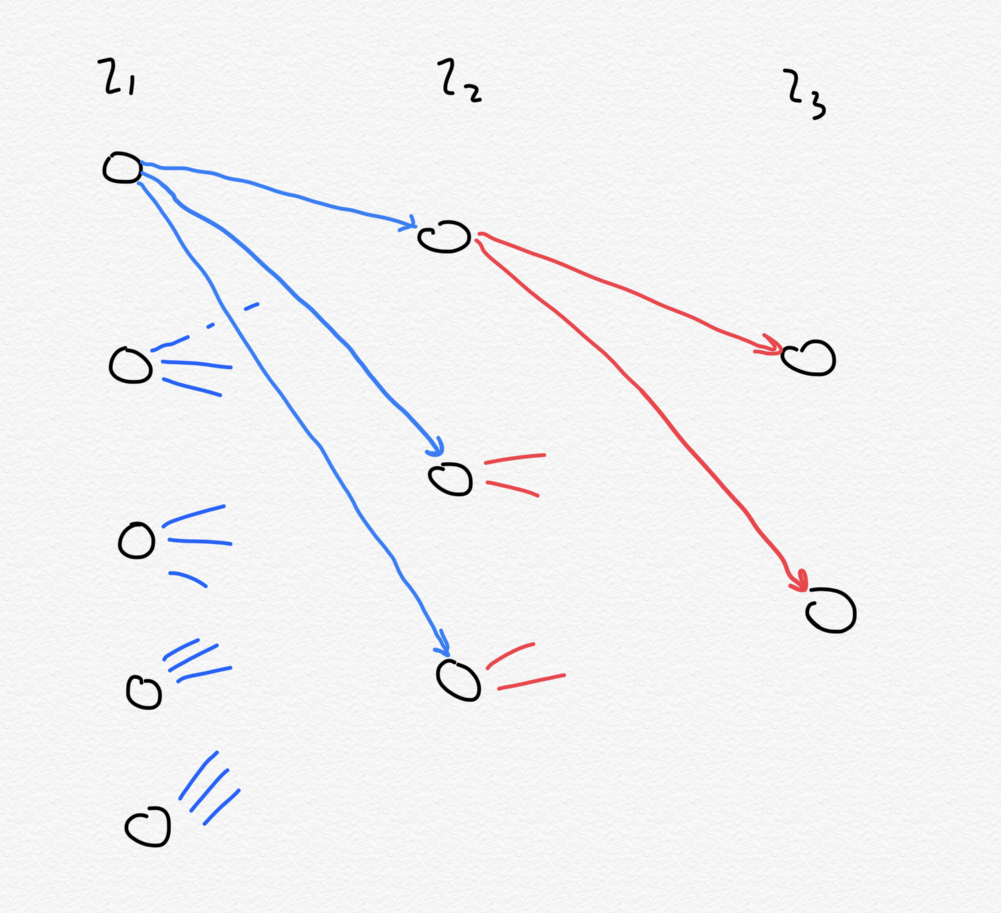 Z₁ Z₂ Z₃